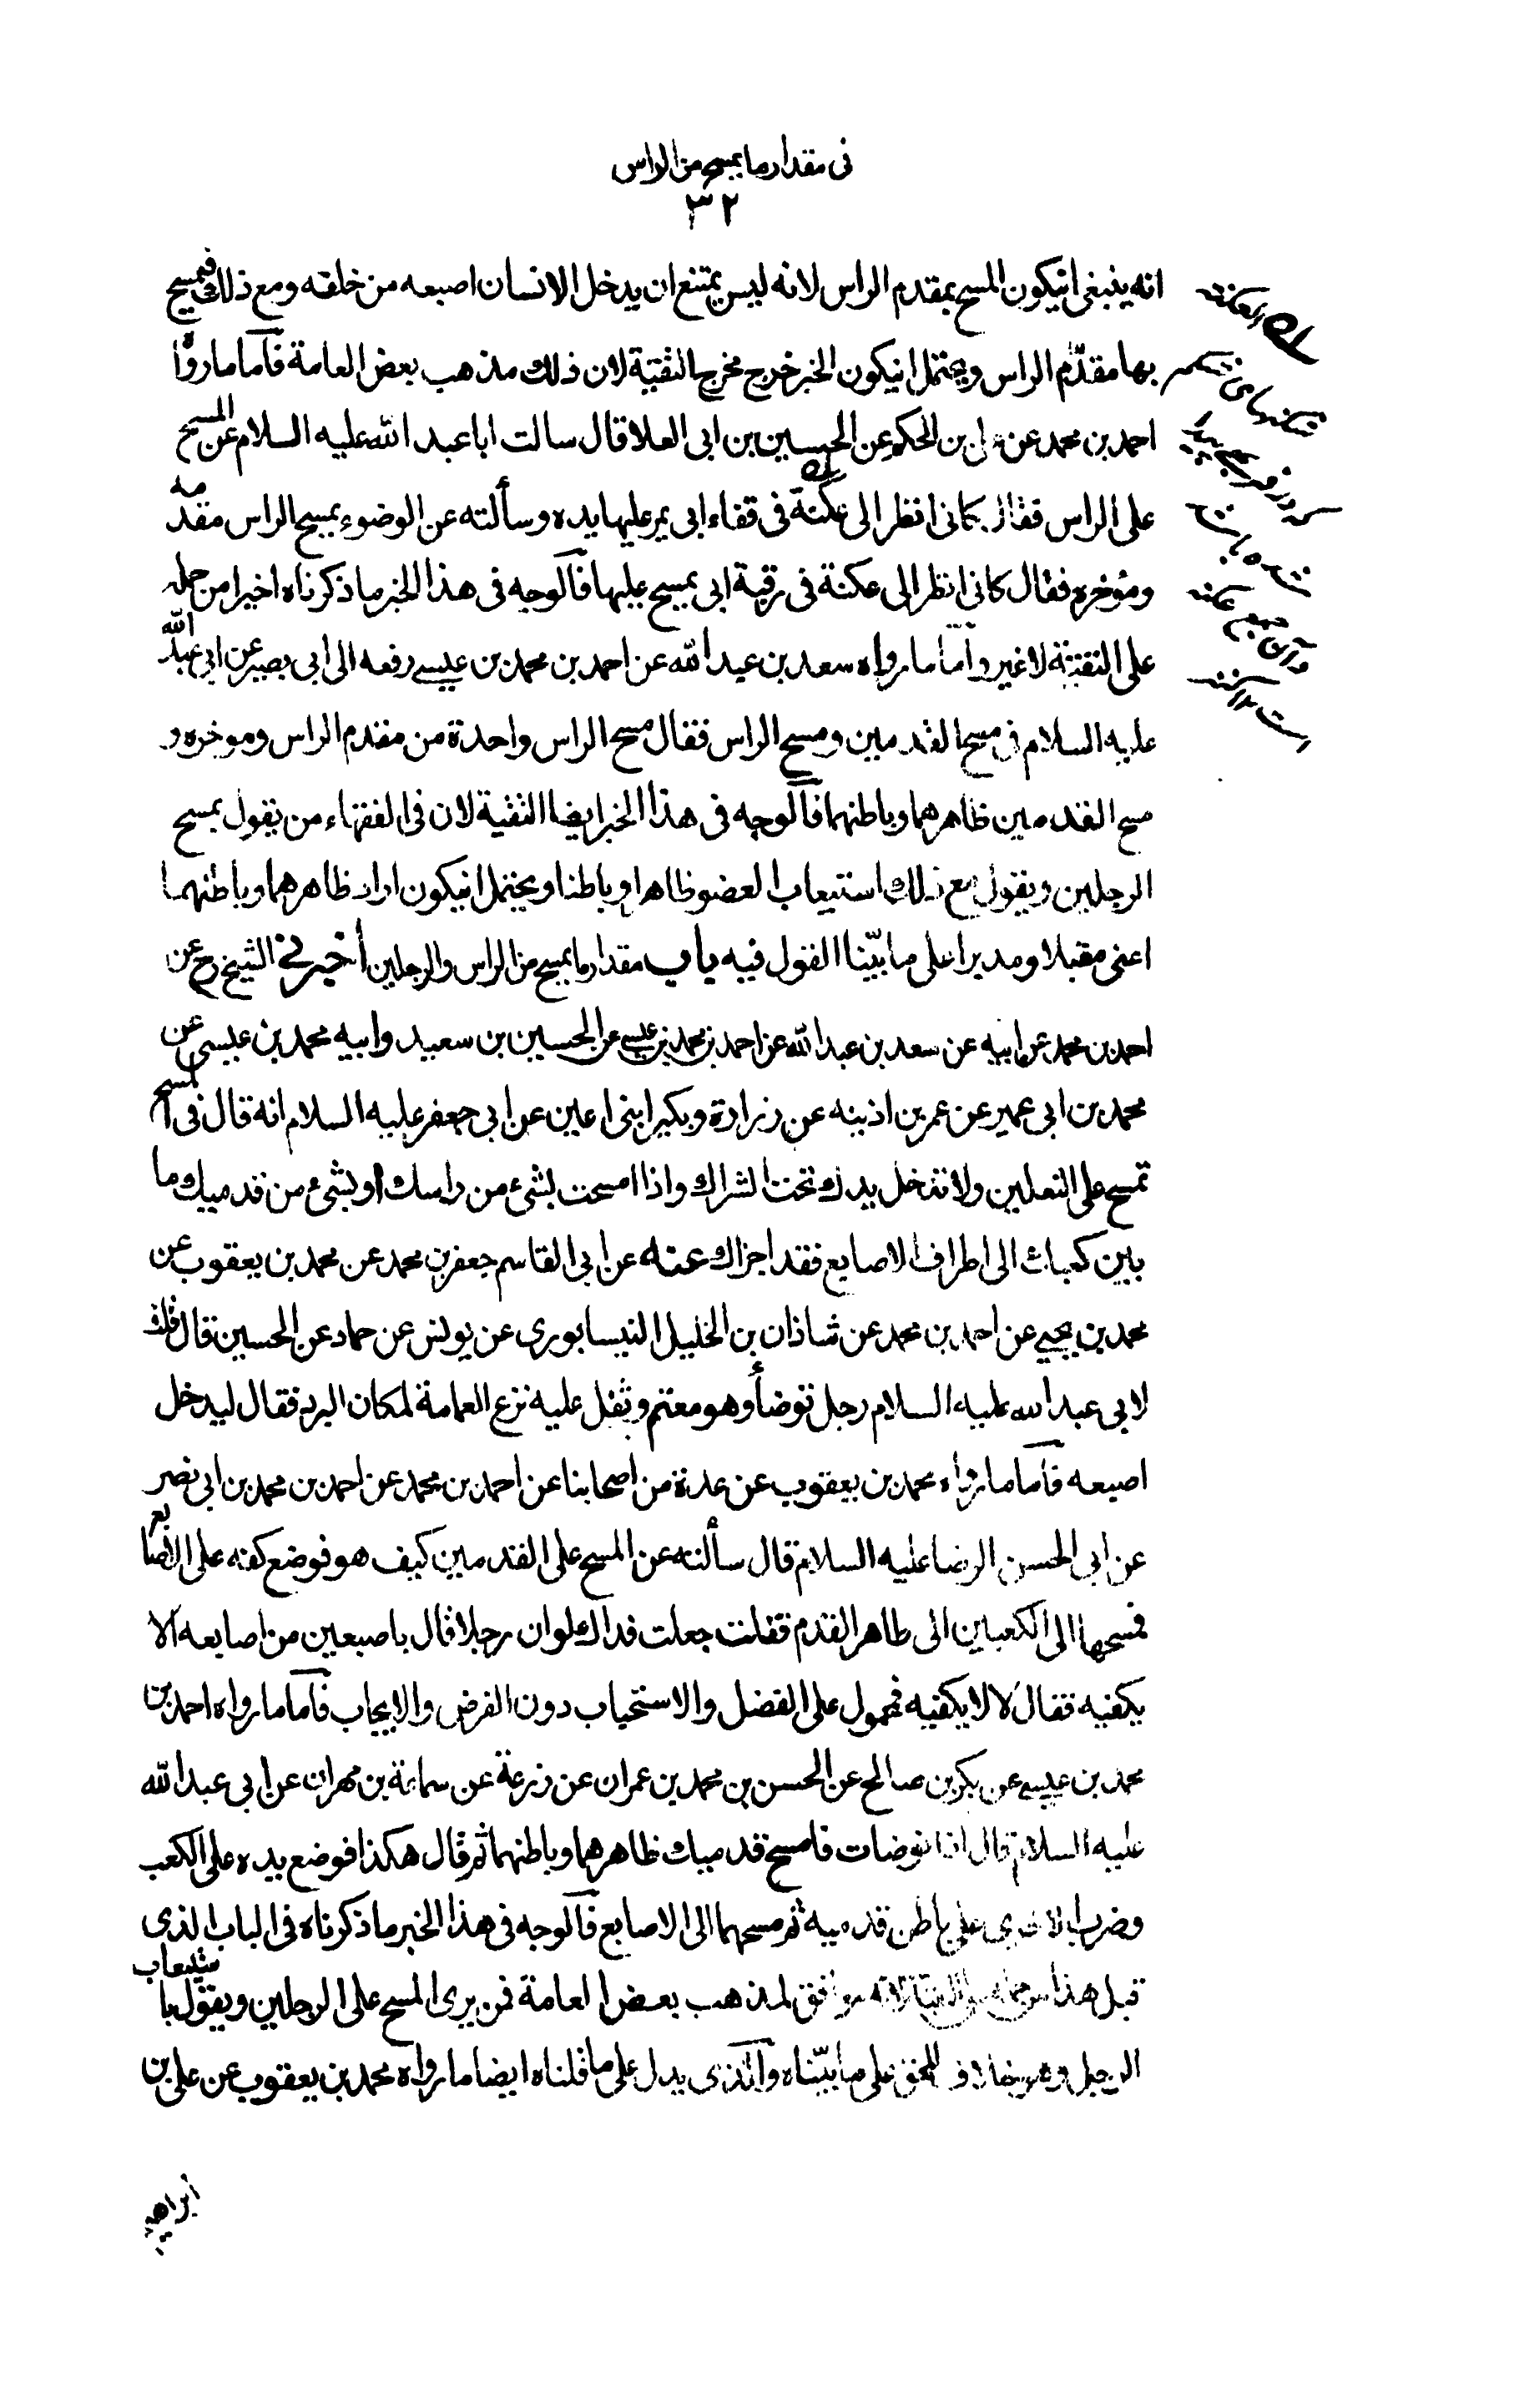 فى مقدار ما يمسح من الراس
٣٢
انه ينبغى انيكون المسح بمقدم الراس لانه ليس يمتنع ان يدخل الانسان اصبعه من خلفه ومع ذلك فيمسح
بها مقدّم الراس ويحتمل انيكون الخبر خرج مخرج التقية لان ذلك مذهب بعض العامة فاما ما رواه
احمد بن محمد عن على بن الحكم عن الحسين بن ابى العلا قال سالت ابا عبد الله عليه السلام عن المسح
على الراس فقال كانى انظر الى عكنة فى قفاء ابى يمر عليها يده وسألته عن الوضوء بمسح الراس مقدمه
ومؤخره فقال كانى انظر الى عكنة فى رقبة ابى يمسح عليها فالوجه فى هذا الخبر ما ذكرناه اخيرا من حمله
على التقية لا غير واما ما رواه سعد بن عبد الله عن احمد بن محمد بن عيسى رفعه الى ابى بصير عن ابى عبد الله
عليه السلام فى مسح القدمين ومسح الراس فقال مسح الراس واحدة من مقدم الراس وموخره و
مسح القدمين ظاهرهما وباطنهما فالوجه فى هذا الخبر ايضا التقية لان فى الفقهاء من يقول بمسح
الرجلين ويقول مع ذلك استيعاب العضو ظاهرا وباطنا ويحتمل انيكون اراد ظاهرهما وباطنهما
اعنى مقبلا ومدبرا على ما بيّنا القول فيه باب مقدار ما يمسح من الراس والرجلين أخبرنى الشيخ رح عن
احمد بن محمد عن ابيه عن سعد بن عبد الله عن احمد بن محمد بن عيسى عن الحسين بن سعيد وابيه محمد بن عيسى عن
محمد بن ابى عمير عن عمر بن اذينه عن زرارة وبكير ابنى اعين عن ابى جعفر عليه السلام انه قال فى المسح
تمسح على النعلين ولا تدخل يدك تحت الشراك واذا مسحت بشئ من راسك او بشئ من قدميك ما
بين كعبك الى اطراف الاصابع فقد اجزاك عنه عن ابى القاسم جعفر بن محمد عن محمد بن يعقوب عن
محمد بن يحيى عن احمد بن محمد عن شاذان بن الخليل النيسابورى عن يونس عن حماد عن الحسين قال قلت
لابى عبد الله عليه السلام رجل توضأ وهو معتم وثقل عليه نزع العمامة لمكان البرد فقال ليدخل
اصبعه فاما ما رواه محمد بن يعقوب عن عدة من اصحابنا عن احمد بن محمد عن احمد بن محمد بن ابى نصر
عن ابى الحسن الرضا عليه السلام قال سألته عن المسح على القدمين كيف هو فوضع كفه على الاصابع
فمسحها الى الكعبين الى ظاهر القدم فقلت جعلت فداك لوان رجلا قال باصبعين من اصابعه الا
يكفيه فقال لا لا يكفيه فمحمول على الفضل والاستحباب دون الفرض والايجاب فاما ما رواه احمد بن
محمد بن عيسى عن بكر بن صالح عن الحسن بن محمد بن عمران عن زرعة عن سماعة بن مهران عن ابى عبد الله
عليه السلام قال اذا توضات فامسح قدميك ظاهرهما وباطنهما ثم قال هكذا فوضع يده على الكعب
وضرب الاخرى على باطن قدميه ثم مسحهما الى الاصابع فالوجه فى هذا الخبر ما ذكرناه فى الباب الذى
قبل هذا من حمله على التقية لانه موافق لمذهب بعض العامة فمن يرى المسح على الرجلين ويقول باستيعاب
الرجل وهو خلاف الحق على ما بيّناه والذى يدل على ما قلناه ايضا ما رواه محمد بن يعقوب عن على بن
ابراهيم